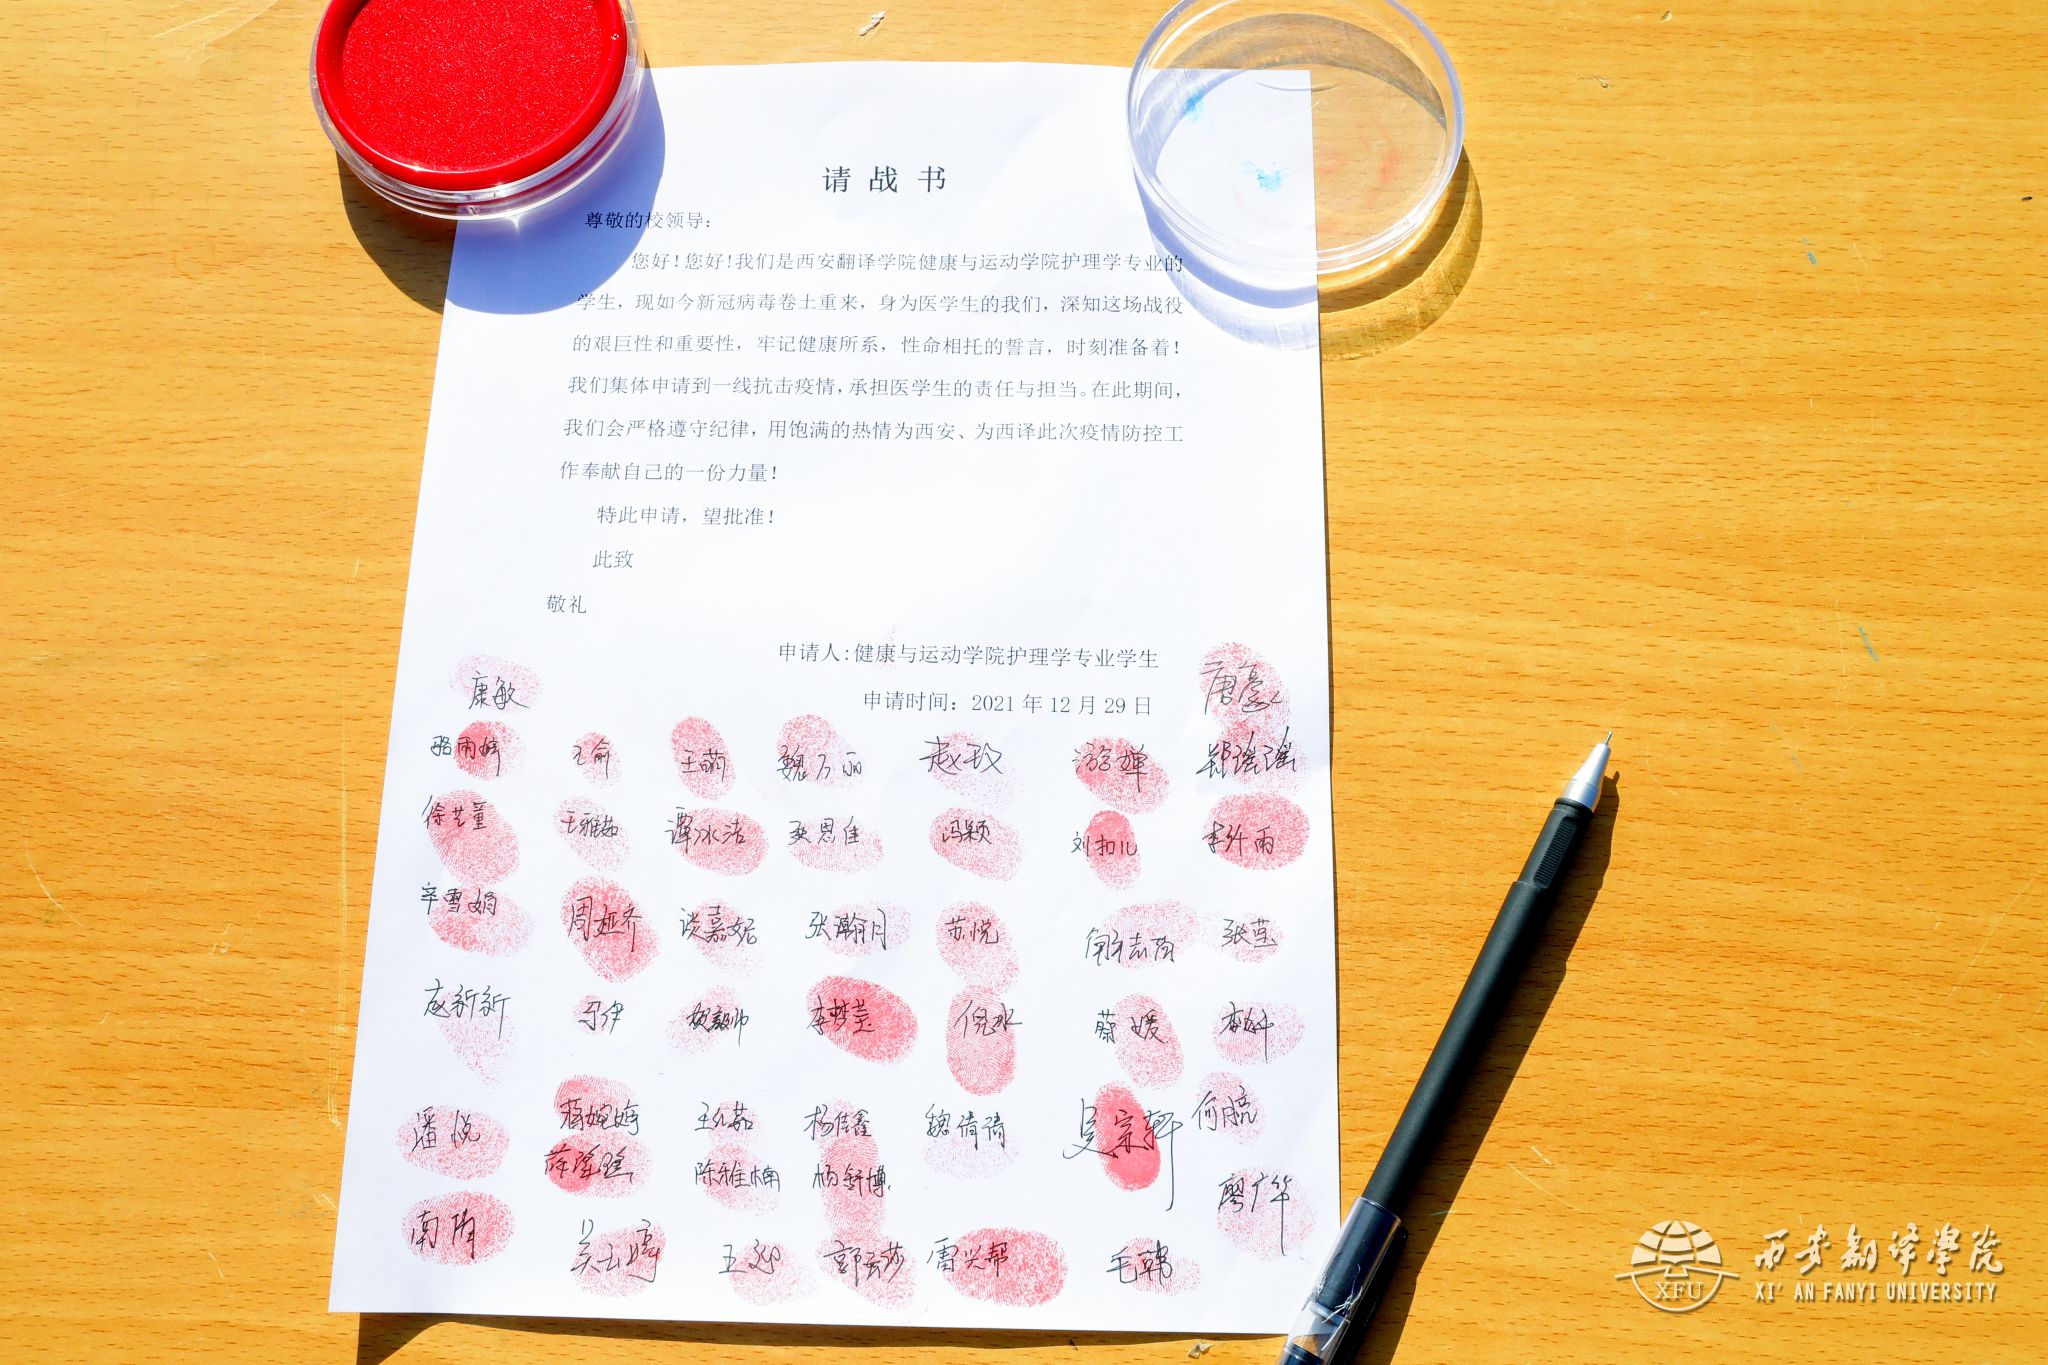 请战书
尊敬的校领导：
您好！您好！我们是西安翻译学院健康与运动学院护理学专业的
学生，现如今新冠病毒卷土重来，身为医学生的我们，深知这场战役
的艰巨性和重要性，牢记健康所系，性命相托的誓言，时刻准备着！
我们集体申请到一线抗击疫情，承担医学生的责任与担当。在此期间，
我们会严格遵守纪律，用饱满的热情为西安、为西译此次疫情防控工
作奉献自己的一份力量！
特此申请，望批准！
此致
敬礼
申请人：健康与运动学院护理学专业学生
申请时间：2021 年 12 月 29 日
康敏
骆雨婷 王俞 王萌 魏万丽 赵玫 郑瑶瑶
徐艺童 王雅茹 谭冰洁 冯颖 刘扣儿
辛雪娟 周娅乔 谈嘉妮 张瀚月 苏悦 张莹
赵新新 马伊 李梦莹 倪冰 蔡媛
潘悦 杨佳鑫 魏倩倩 吴宗轩 何航
陈雅楠 杨舒博 廖广华
南倩 郭云莎 雷兴帮 毛韩
西安翻译学院
XFU
XI' AN FANYI UNIVERSITY